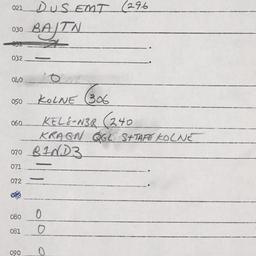 021 DUS EMT (296
030 BAJTN
031 .
032 — .
040 0
050 KOLNE (306
060 KELE-N3R (240
KRAGN QGL S+TAFE KOLNE
070 B1ND3
071 — .
072 — .
080 0
081 0
090 0